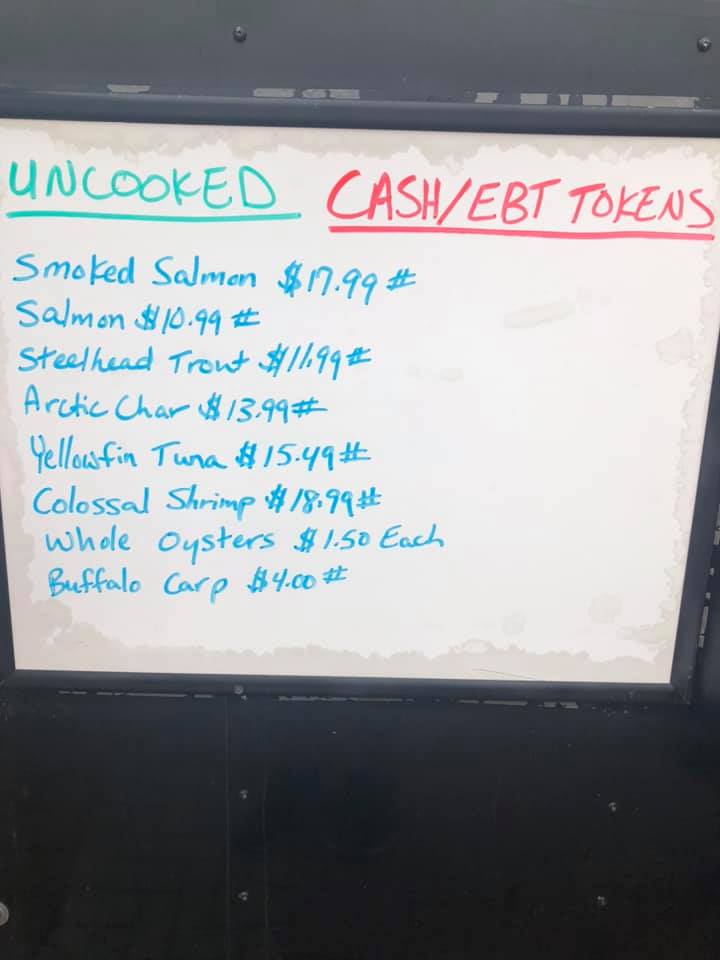 UNCOOKED CASH/EBT TOKENS
Smoked Salmon $17.99 #
Salmon $10.99 #
Steelhead Trout $11.99 #
Arctic Char $13.99 #
Yellowfin Tuna $15.49 #
Colossal Shrimp $18.99 #
Whole Oysters $1.50 Each
Buffalo Carp $4.00 #